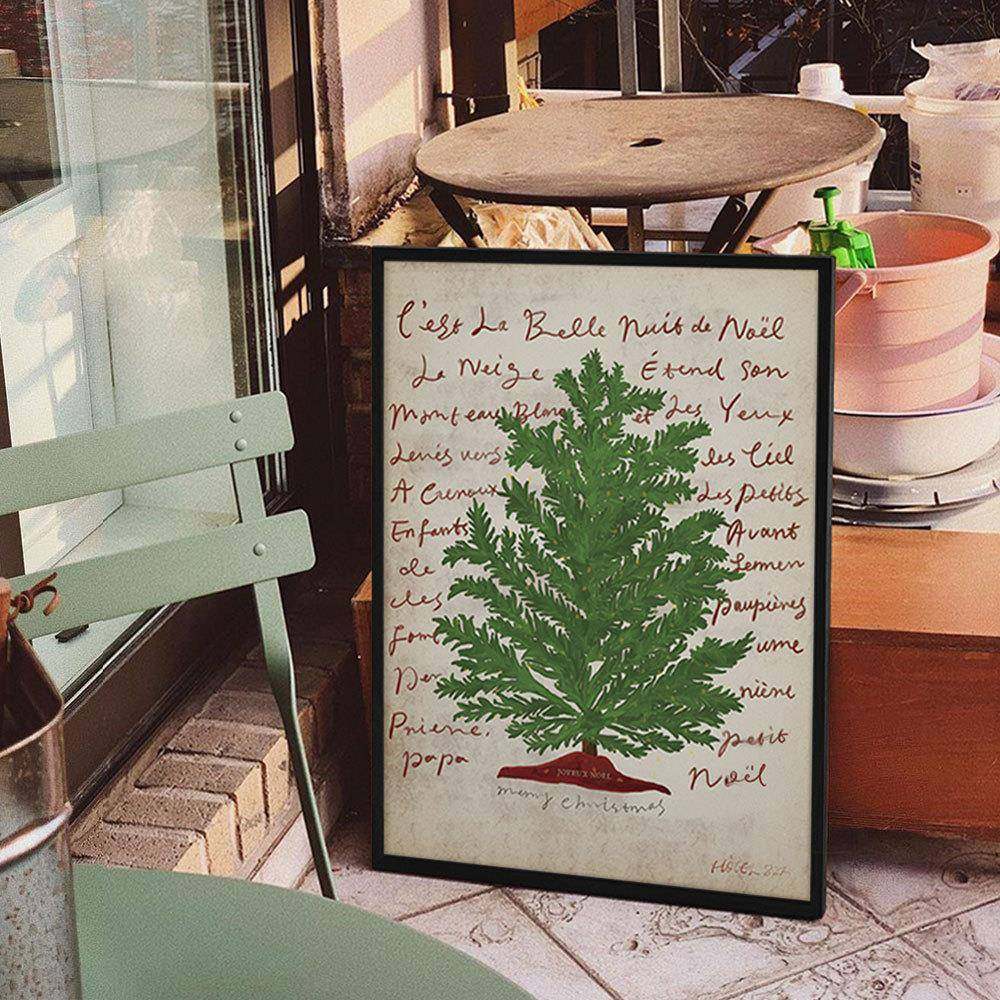 C'est La Belle Nuit de Noël
La Neige Étend Son
Manteau Blanc et Les Yeux
Levés vers les Ciel
A Genoux Les Petits
Enfants Avant
de Fermer
les paupières
Font une
Der nière
Prière.
papa petit
Noël
JOYEUX NOËL
merry christmas